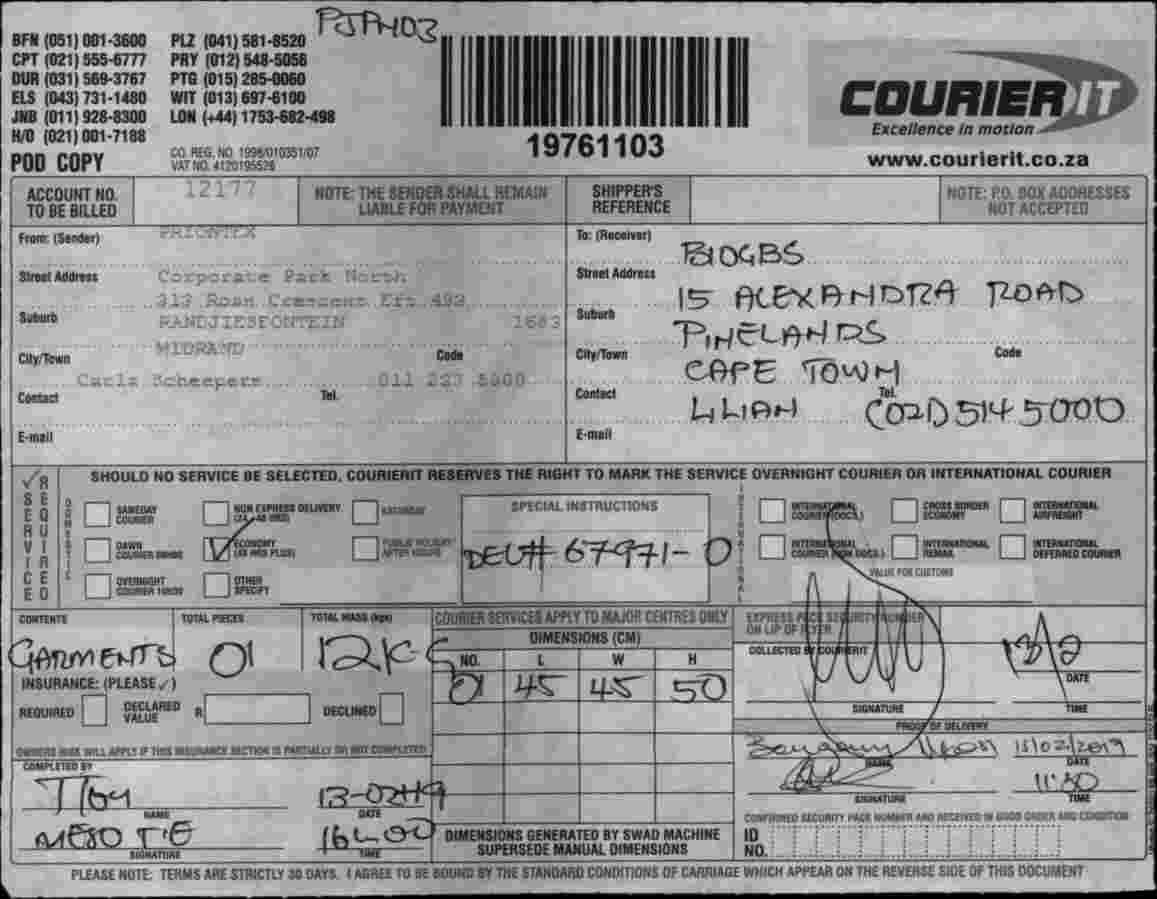 PJPH03
BFN (051) 001-3600 PLZ (041) 581-8520
CPT (021) 555-6777 PRY (012) 548-5056
DUR (031) 569-3767 PTG (015) 285-0060
ELS (043) 731-1480 WIT (013) 697-6100
JNB (011) 928-8300 LON (+44) 1753-682-498
H/O (021) 001-7188
POD COPY
CO. REG. NO. 1998/010351/07
VAT NO. 4120195526
19761103
COURIER IT
Excellence in motion
www.courierit.co.za
ACCOUNT NO. TO BE BILLED 12177
NOTE: THE SENDER SHALL REMAIN LIABLE FOR PAYMENT
SHIPPER'S REFERENCE
NOTE: P.O. BOX ADDRESSES NOT ACCEPTED
From: (Sender) PRIONTEX
Street Address Corporate Park North
313 Roan Crescent Ext 493
Suburb RANDJIESFONTEIN 1683
City/Town MIDRAND Code
Carla Scheepers 011 223 5000
Contact Tel.
E-mail
To: (Receiver) BIOGBS
Street Address 15 ALEXANDRA ROAD
Suburb PINELANDS
City/Town CAPE TOWN Code
Contact LILIAN Tel. (021) 514 5000
E-mail
SERVICE REQUIRED
SHOULD NO SERVICE BE SELECTED, COURIERIT RESERVES THE RIGHT TO MARK THE SERVICE OVERNIGHT COURIER OR INTERNATIONAL COURIER
DOMESTIC
SAMEDAY COURIER
NON EXPRESS DELIVERY (24-48 HRS)
SATURDAY
DAWN COURIER
ECONOMY (48 HRS PLUS)
PUBLIC HOLIDAY AFTER HOURS
OVERNIGHT COURIER
OTHER SPECIFY
SPECIAL INSTRUCTIONS
DEL# 67971-0
INTERNATIONAL
INTERNATIONAL COURIER (DOCS.)
CROSS BORDER ECONOMY
INTERNATIONAL AIRFREIGHT
INTERNATIONAL COURIER (NON DOCS.)
INTERNATIONAL REMAIL
INTERNATIONAL DEFERRED COURIER
VALUE FOR CUSTOMS
CONTENTS
GARMENTS
TOTAL PIECES
01
TOTAL MASS (kgs)
12KG
INSURANCE: (PLEASE ✓)
REQUIRED DECLARED VALUE R DECLINED
OWNERS RISK WILL APPLY IF THIS INSURANCE SECTION IS PARTIALLY OR NOT COMPLETED
COURIER SERVICES APPLY TO MAJOR CENTRES ONLY
DIMENSIONS (CM)
NO. L W H
01 45 45 50
DIMENSIONS GENERATED BY SWAD MACHINE SUPERSEDE MANUAL DIMENSIONS
EXPRESS PACK SECURITY NUMBER ON LIP OF FLYER
COLLECTED BY COURIERIT
13/2
DATE
SIGNATURE TIME
PROOF OF DELIVERY
15/02/2019
NAME DATE
11:30
SIGNATURE TIME
CONFIRMED SECURITY PACK NUMBER AND RECEIVED IN GOOD ORDER AND CONDITION
ID NO.
COMPLETED BY
13-02-19
NAME DATE
16h00
SIGNATURE TIME
PLEASE NOTE: TERMS ARE STRICTLY 30 DAYS. I AGREE TO BE BOUND BY THE STANDARD CONDITIONS OF CARRIAGE WHICH APPEAR ON THE REVERSE SIDE OF THIS DOCUMENT